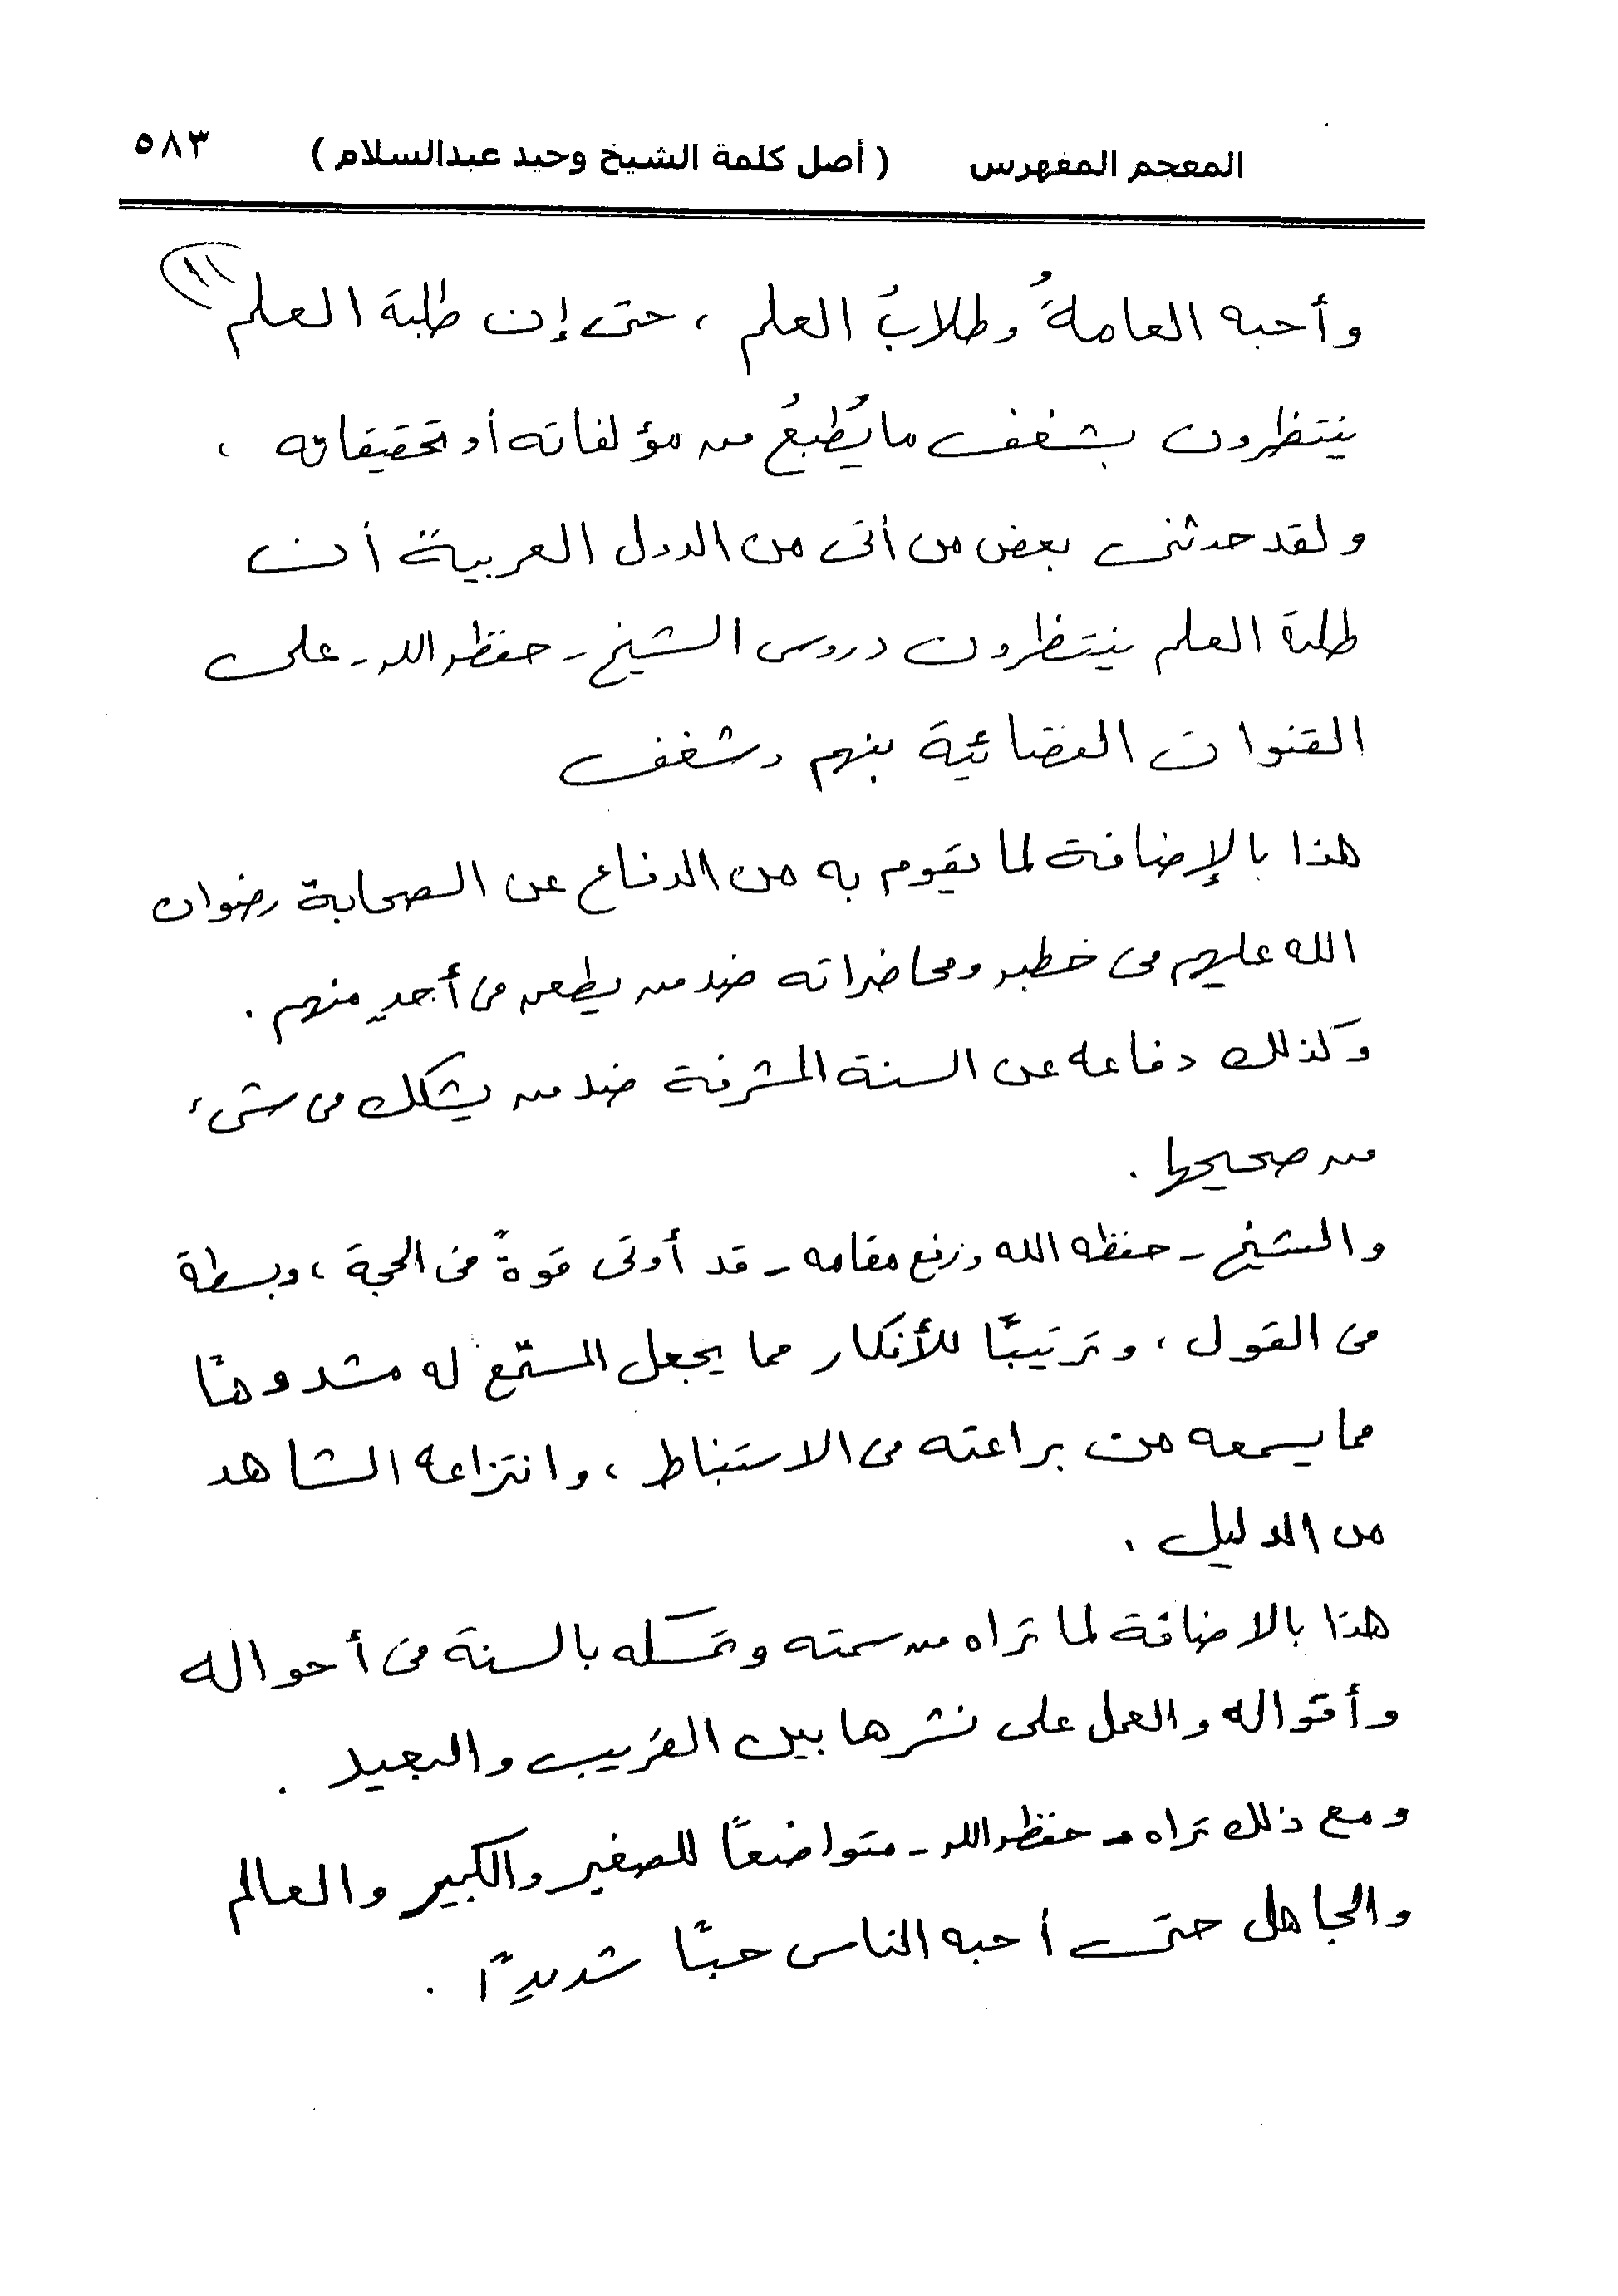 المعجم المفهرس ( أصل كلمة الشيخ وحيد عبدالسلام ) ٥٨٣
١١
وأحبه العامةُ وطلابُ العلم ، حتى إن طلبة العلم
ينتظرون بشغف ما يُطبعُ من مؤلفاته أو تحقيقاته ،
ولقد حدثنى بعض من أتى من الدول العربية أن
طلبة العلم ينتظرون دروس الشيخ - حفظه الله - على
القنوات الفضائية بنهم وشغف
هذا بالإضافة لما يقوم به من الدفاع عن الصحابة رضوان
الله عليهم فى خطبه ومحاضراته ضد من يطعن فى أحدٍ منهم .
وكذلك دفاعه عن السنة المشرفة ضد من يشكك فى شىء
من صحيحها .
والشيخ - حفظه الله ورفع مقامه - قد أوتى قوةً فى الحجة ، وبسطة
فى القول ، وترتيبًا للأفكار مما يجعل المستمع له مشدوهًا
مما يسمعه من براعته فى الاستنباط ، وانتزاعه الشاهد
من الدليل .
هذا بالاضافة لما تراه من سمته وتمسكه بالسنة فى أحواله
وأقواله والعمل على نشرها بين القريب والبعيد .
ومع ذلك تراه - حفظه الله - متواضعًا للصغير والكبير والعالم
والجاهل حتى أحبه الناس حبًا شديدًا .